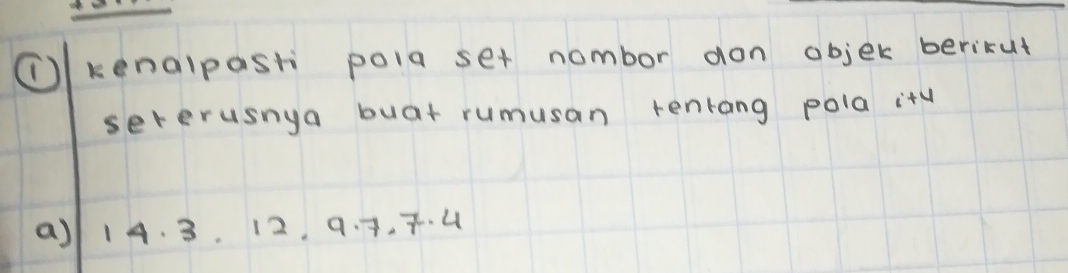 ① kenalpasti pola set nombor dan objek berikut
seterusnya buat rumusan tentang pola itu
a) 14.3, 12, 9.7, 7.4